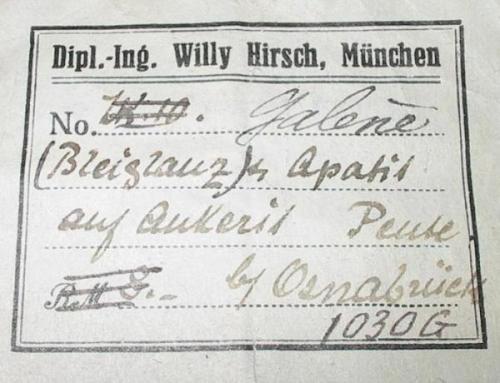 Dipl.-Ing. Willy Hirsch, München
No. Galene
(Bleiglanz) u Apatit
auf Ankerit Pente
R.M. b/ Osnabrück
1030G